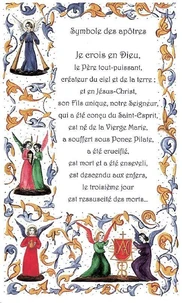 Symbole des apôtres
Je crois en Dieu,
le Père tout-puissant,
créateur du ciel et de la terre ;
et en Jésus-Christ,
son Fils unique, notre Seigneur,
qui a été conçu du Saint-Esprit,
est né de la Vierge Marie,
a souffert sous Ponce Pilate,
a été crucifié,
est mort et a été enseveli,
est descendu aux enfers,
le troisième jour
est ressuscité des morts...